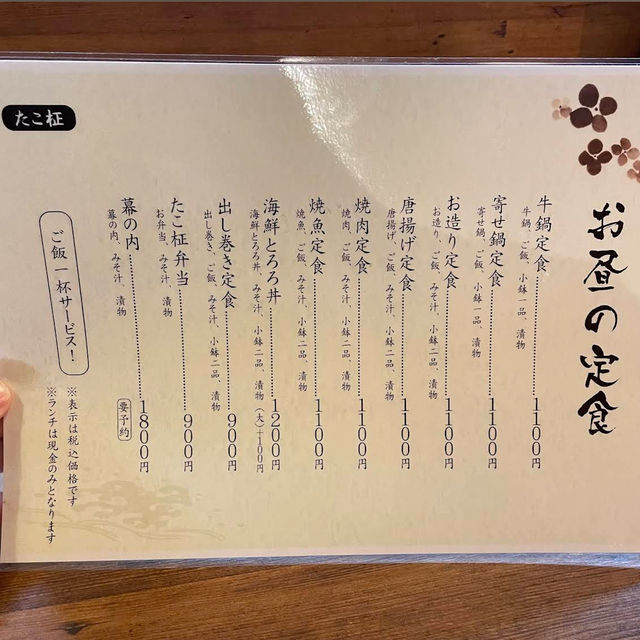 お昼の定食
牛鍋定食 1100円
牛鍋、ご飯、小鉢一品、漬物
寄せ鍋定食 1100円
寄せ鍋、ご飯、小鉢一品、漬物
お造り定食 1100円
お造り、ご飯、みそ汁、小鉢二品、漬物
唐揚げ定食 1100円
唐揚げ、ご飯、みそ汁、小鉢二品、漬物
焼肉定食 1100円
焼肉、ご飯、みそ汁、小鉢二品、漬物
焼魚定食 1100円
焼魚、ご飯、みそ汁、小鉢二品、漬物
海鮮とろろ丼 1200円
海鮮とろろ丼、みそ汁、小鉢二品、漬物 (大)+100円
出し巻き定食 900円
出し巻き、ご飯、みそ汁、小鉢二品、漬物
たこ柾弁当 900円
お弁当、みそ汁、漬物
幕の内 1800円
幕の内、みそ汁、漬物 要予約
ご飯一杯サービス!
※表示は税込価格です
※ランチは現金のみとなります
たこ柾